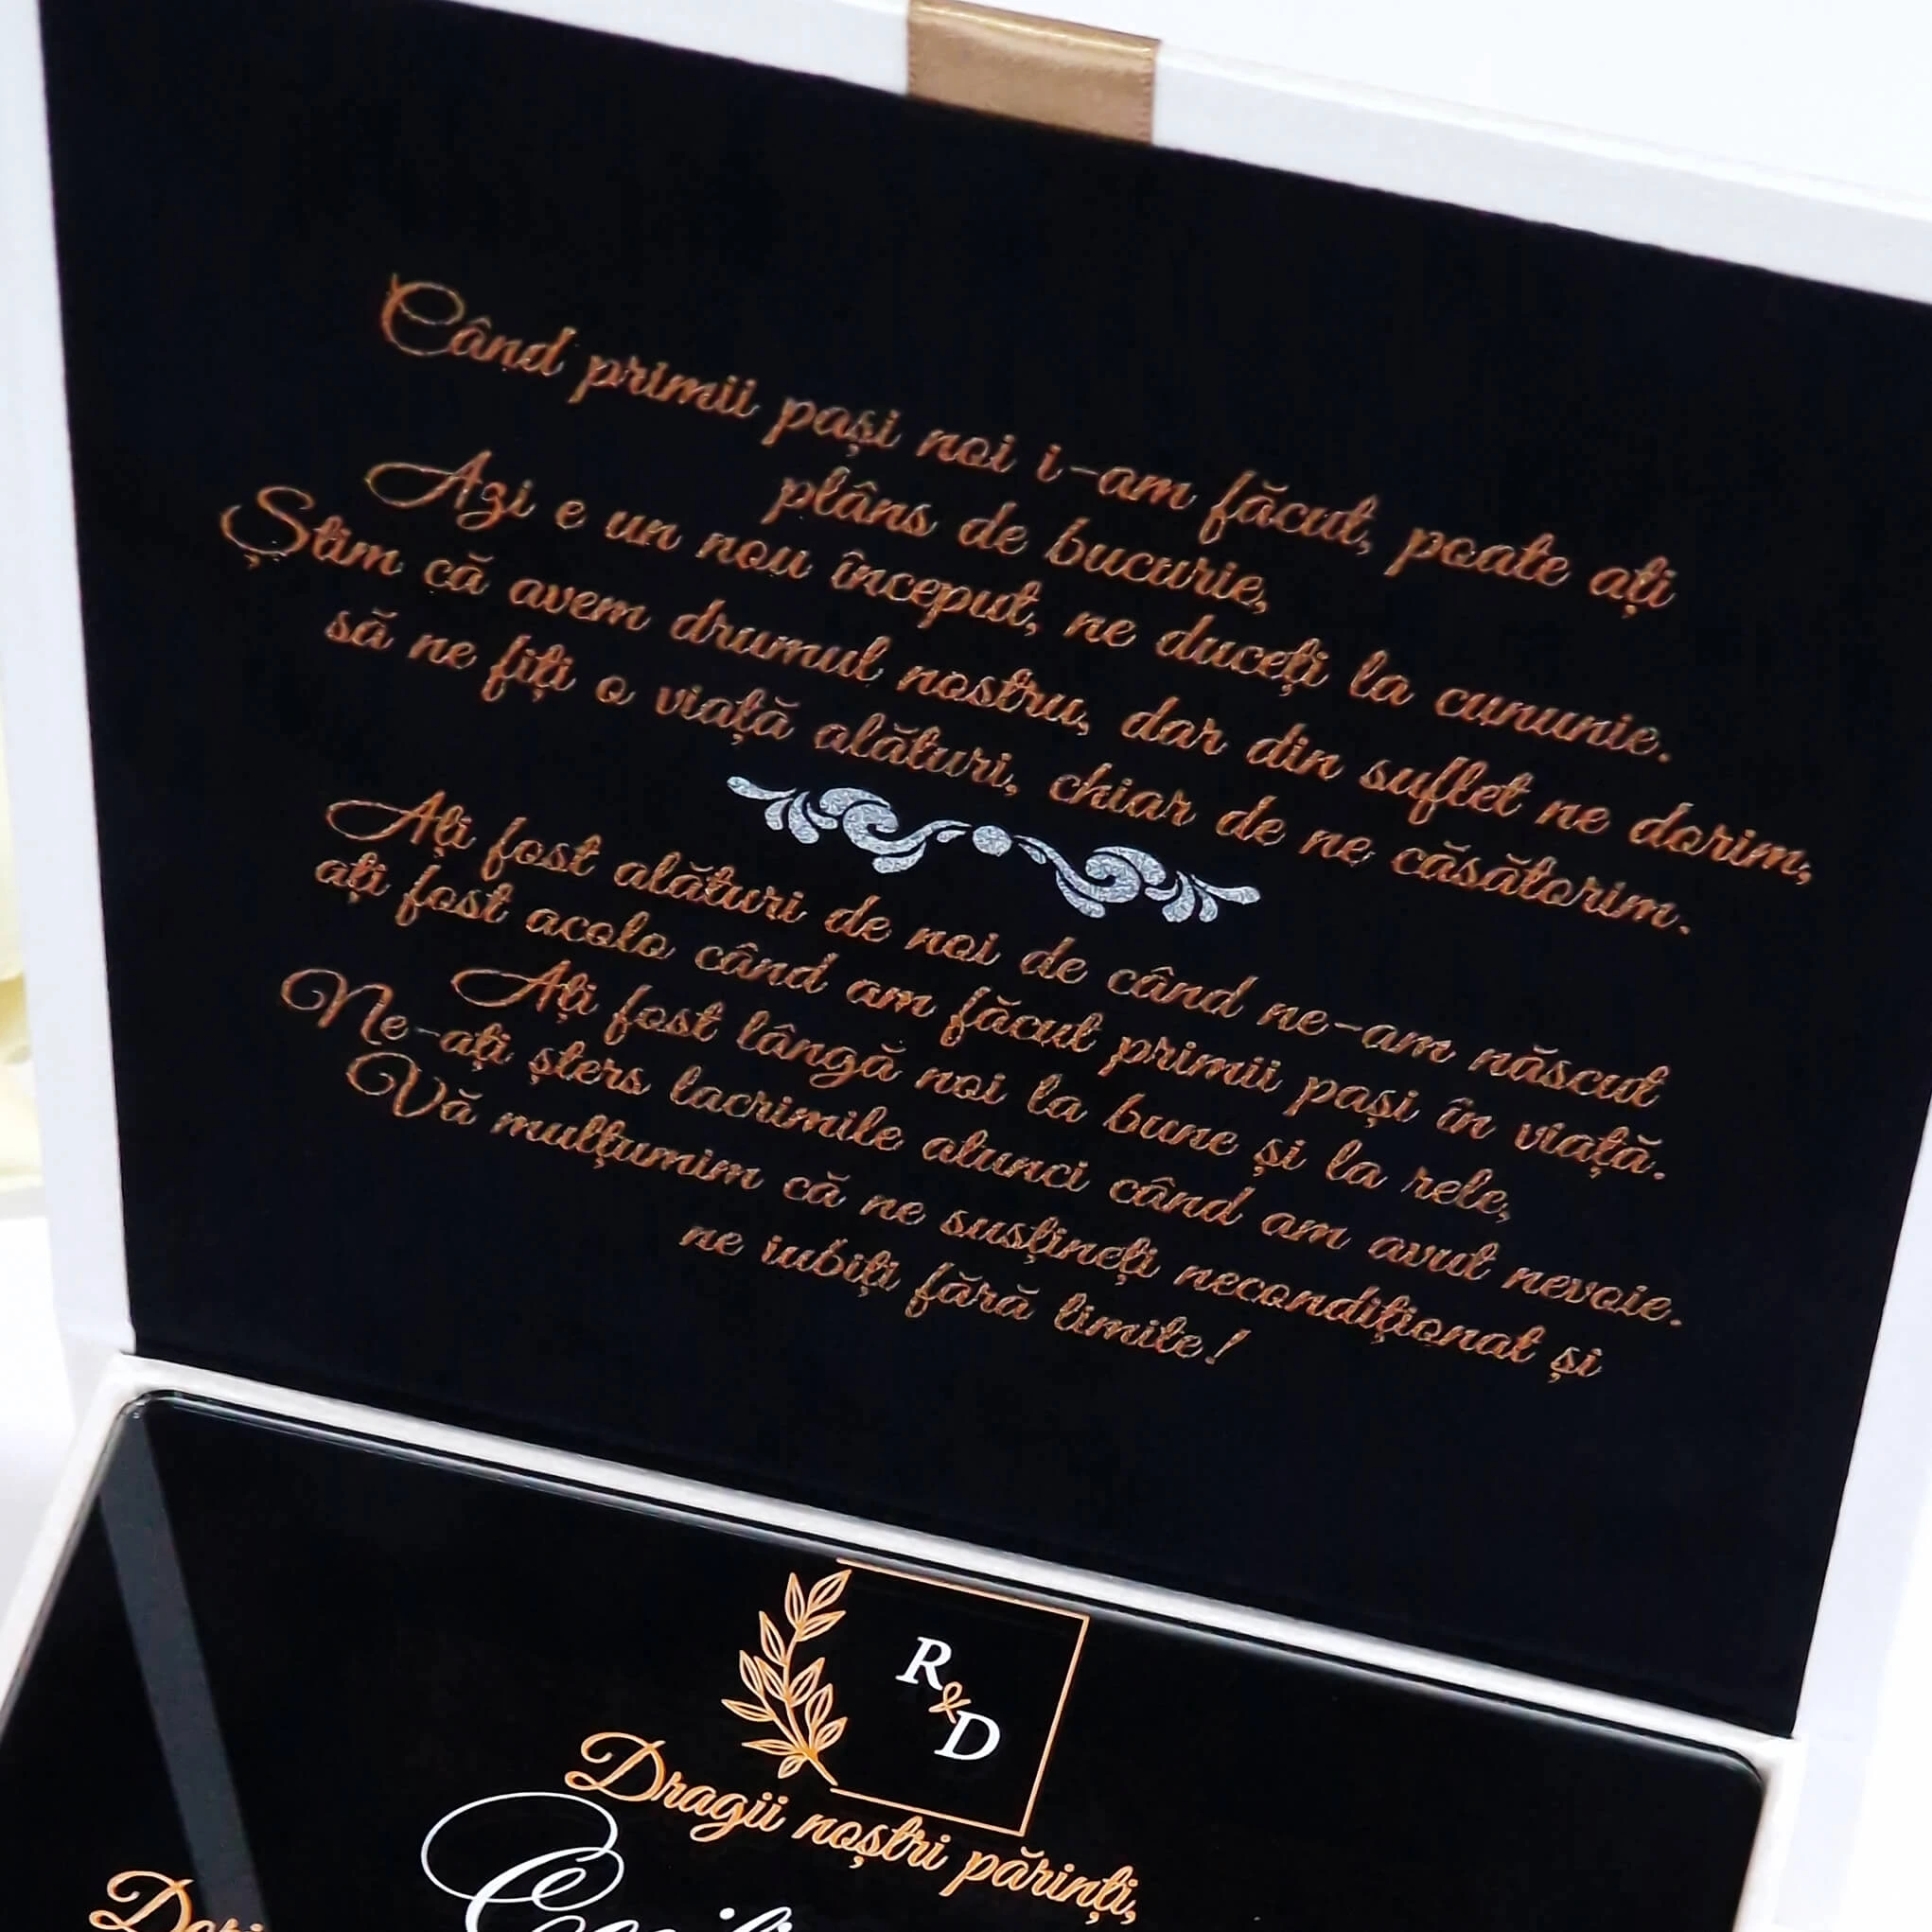 Când primii pași noi i-am făcut, poate ați
plâns de bucurie,
Azi e un nou început, ne duceți la cununie.
Știm că avem drumul nostru, dar din suflet ne dorim,
să ne fiți o viață alături, chiar de ne căsătorim.
Ați fost alături de noi de când ne-am născut
ați fost acolo când am făcut primii pași în viață.
Ați fost lângă noi la bune și la rele,
Ne-ați șters lacrimile atunci când am avut nevoie.
Vă mulțumim că ne susțineți necondiționat și
ne iubiți fără limite!
R
&
D
Dragii noștri părinți,